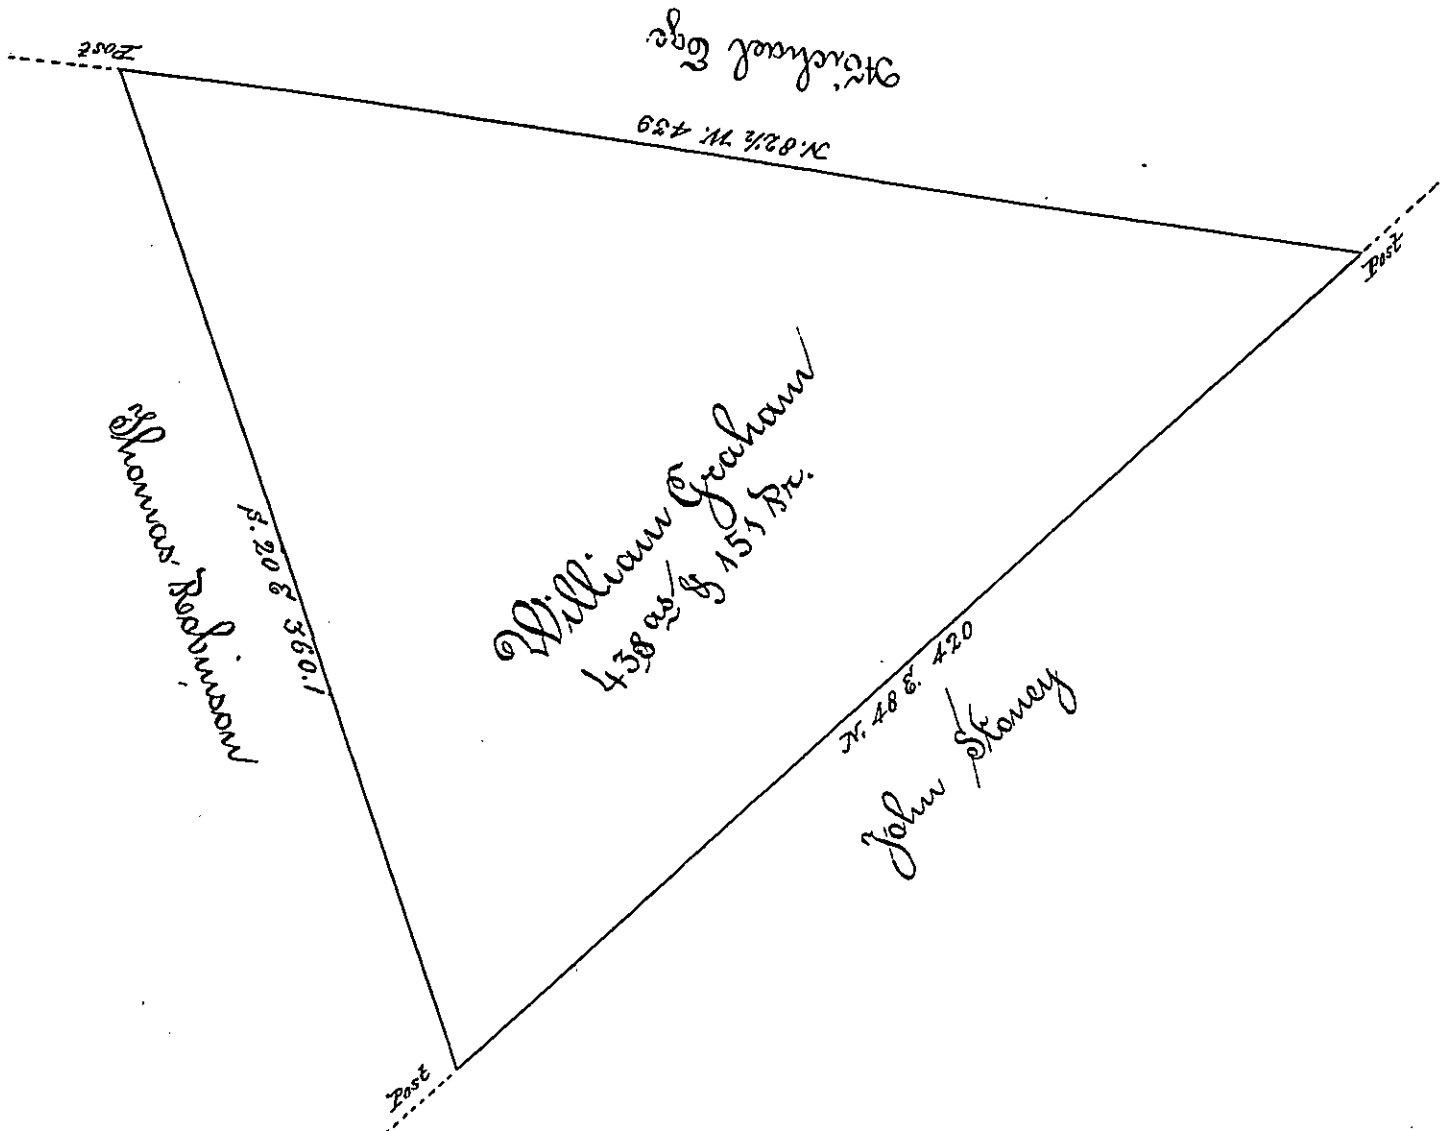 Post
Michael Ege
N. 82½ W. 439
Post
Thomas Robinson
S. 20 E 360.1
William Graham
438 as & 151 Pr.
N. 48 E. 420
John Stoney
Post